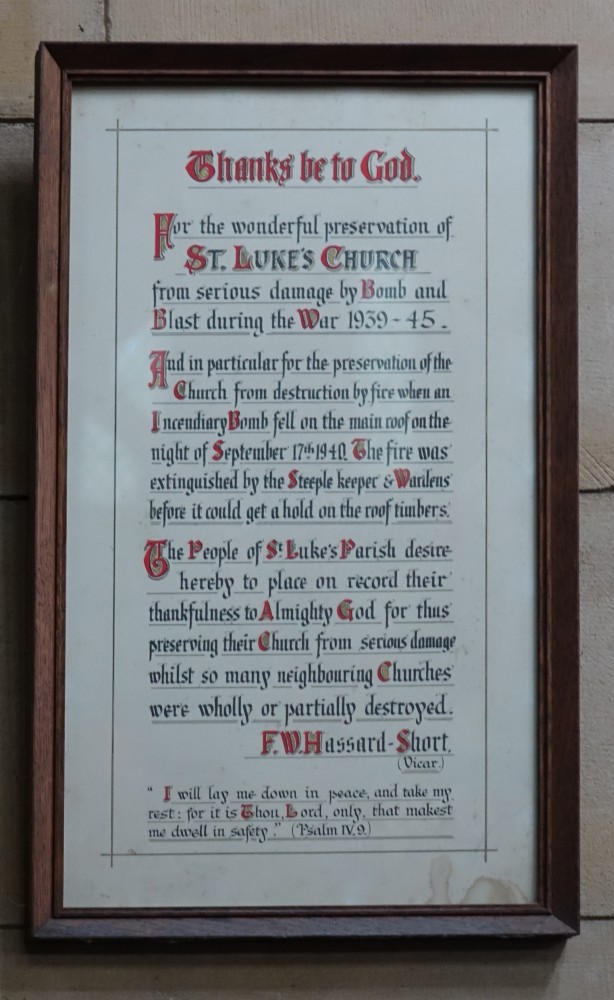 Thanks be to God.
For the wonderful preservation of
ST. LUKE'S CHURCH
from serious damage by Bomb and
Blast during the War 1939-45.
And in particular for the preservation of the
Church from destruction by fire when an
Incendiary Bomb fell on the main roof on the
night of September 17th 1940. The fire was
extinguished by the Steeple keeper & Wardens
before it could get a hold on the roof timbers.
The People of St. Luke's Parish desire
hereby to place on record their
thankfulness to Almighty God for thus
preserving their Church from serious damage
whilst so many neighbouring Churches
were wholly or partially destroyed.
F.W. Hassard-Short,
(Vicar.)
" I will lay me down in peace, and take my
rest: for it is Thou, Lord, only, that makest
me dwell in safety." (Psalm IV. 9.)